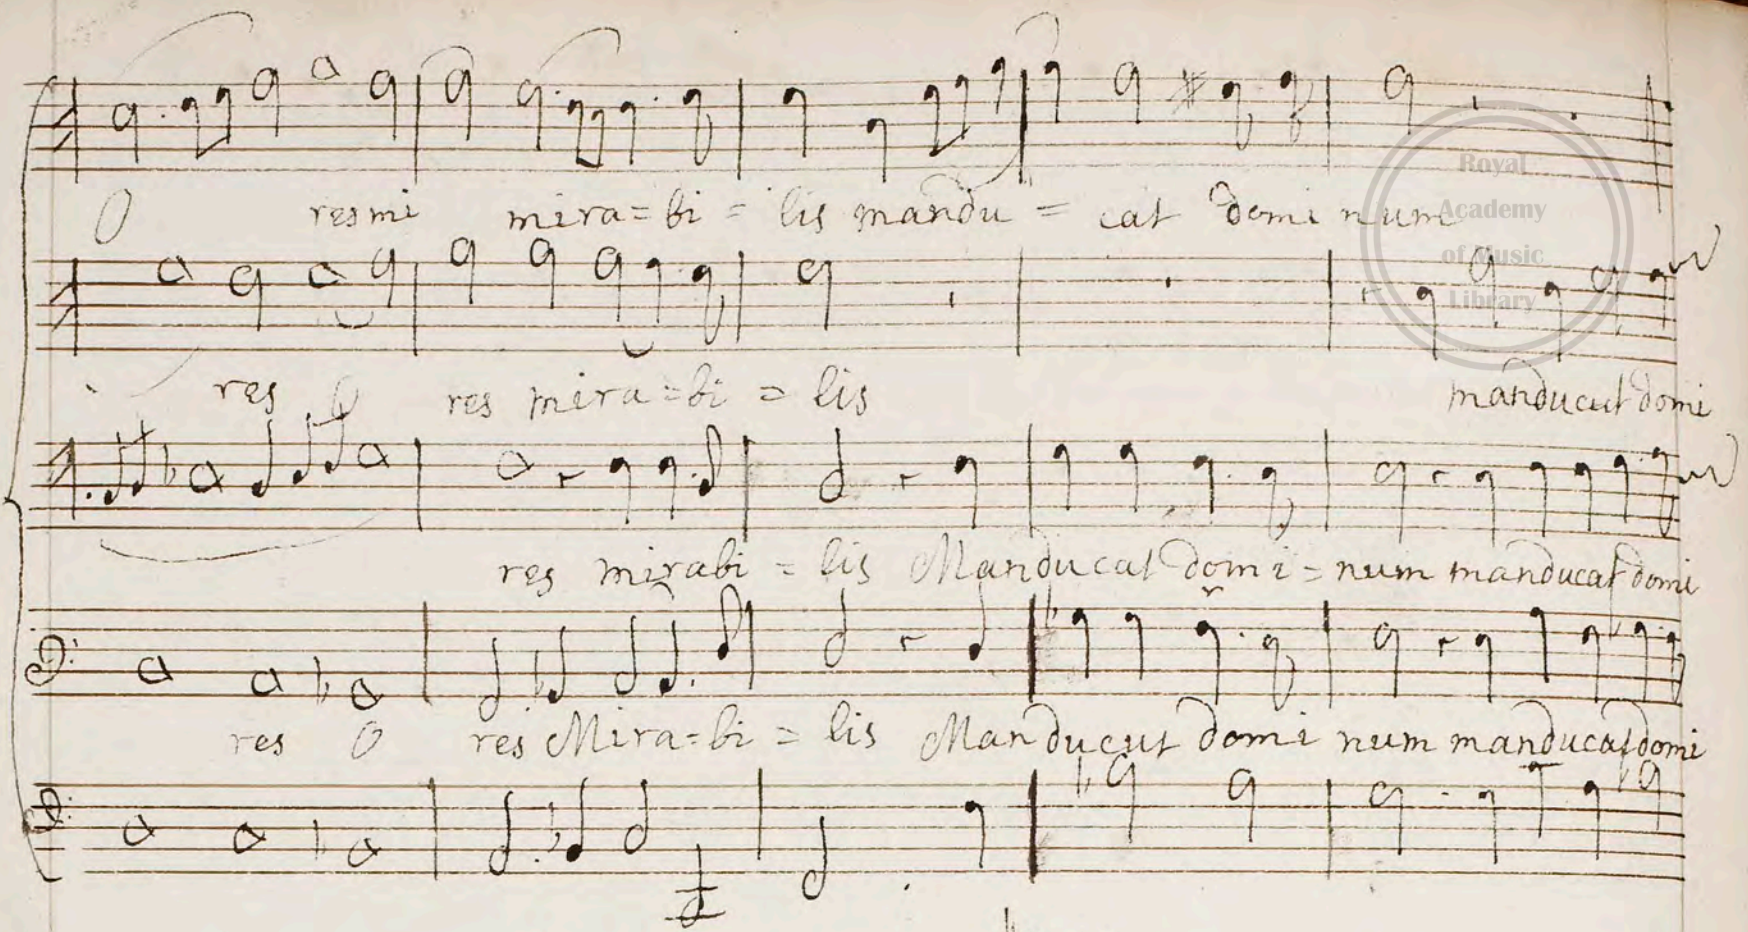 O res mi mira=bi = lis mandu = cat domi num
Royal
Academy
of Music
Library
res O res mira=bi = lis manducut domi
res mirabi = lis Manducat domi = num manducat domi
res O res Mira=bi = lis Manducut domi num manducat domi